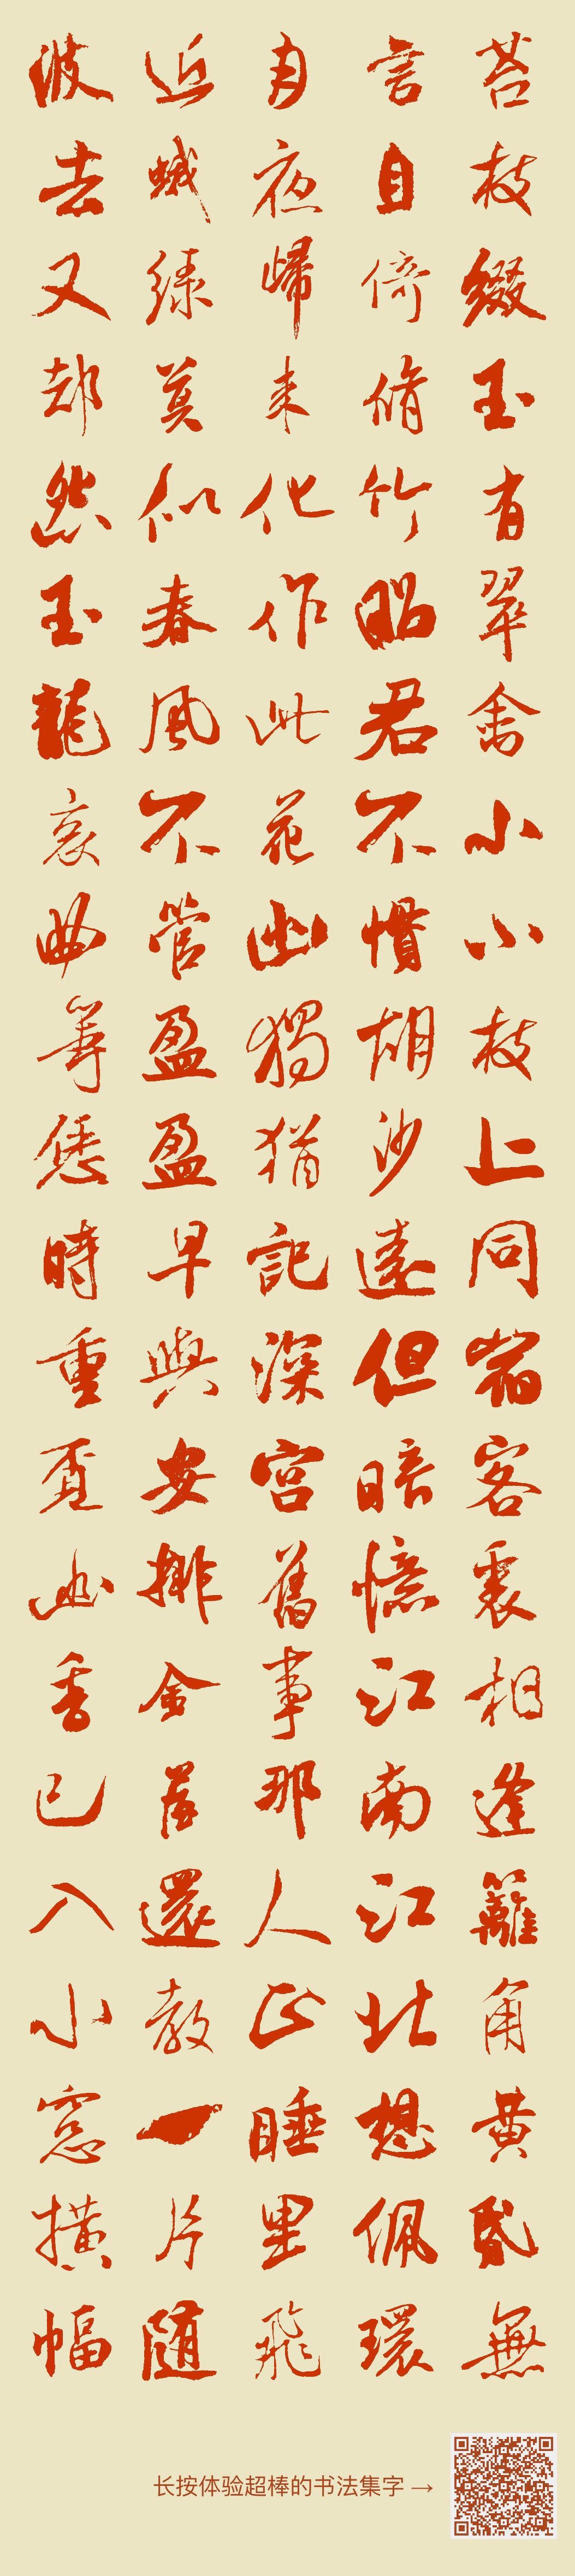 苔枝綴玉有翠禽小小枝上同宿客裏相逢籬角黃昏無
言自倚脩竹昭君不慣胡沙遠但暗憶江南江北想佩環
月夜歸來化作此花幽獨猶記深宮舊事那人正睡里飛
近蛾綠莫似春風不管盈盈早與安排金屋還教一片隨
波去又却怨玉龍哀曲等恁時重覓幽香已入小窓橫幅
长按体验超棒的书法集字 →